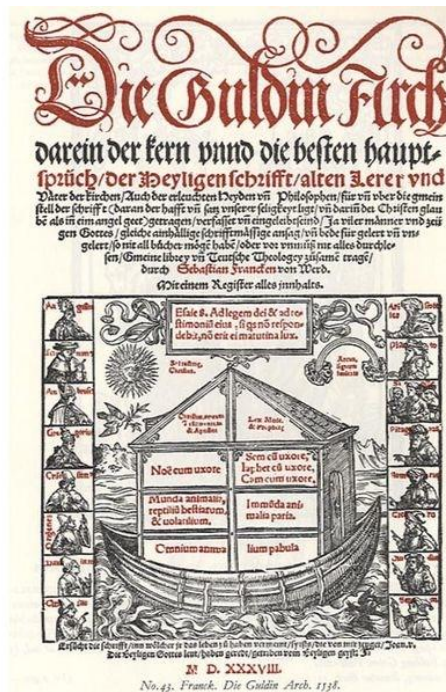 Die Guldin Arch
darein der kern vnnd die besten haupt-
sprüch/der Heyligen schrifft/alten Lerer vnd
Väter der kirchen/Auch der erleuchten Heyden vñ Philosophen/für vñ vber die gmein
stell der schrifft (daran der hafft vñ satz vnserer seligkeyt ligt/vñ darin der Christen glau
be als in eim angel geet) getragen/verfasset vñ eingeleibt seind/Ja viler männer vnd zeü
gen Gottes/gleiche ainhällige schrifftmässige ansag/vñ bede für gelert vñ vn-
gelert/so nit all bücher mögē habē/oder vor vnmůß nit alles durchle-
sen/Gmeine librey vñ Teutsche Theologey zůsamē tragē/
durch Sebastian Francken von Werd.
Mit einem Register alles innhalts.
Esaie 8. Ad legem dei & ad te-
stimoniū eius, si qs nō respon-
debit, nō erit ei matutina lux.
Christus.
Arcus,
signum
Lex Mose,
& Prophetę
& Apostoli
Noë cum uxore
Sem cū uxore,
Iaphet cū uxore,
Com cum uxore.
Munda animalia,
reptiliū bestiarum,
& uolatilium.
Immūda ani-
malia paria.
Omnium anima
lium pabula
Ersůcht die schrifft/inn wölcher jr das leben zů haben vermeint/
Die Heyligen Gottes leut/haben geredt/getriben vom Heyligen geyst.
M D. XXXVIII.
No. 43. Franck. Die Guldin Arch. 1538.